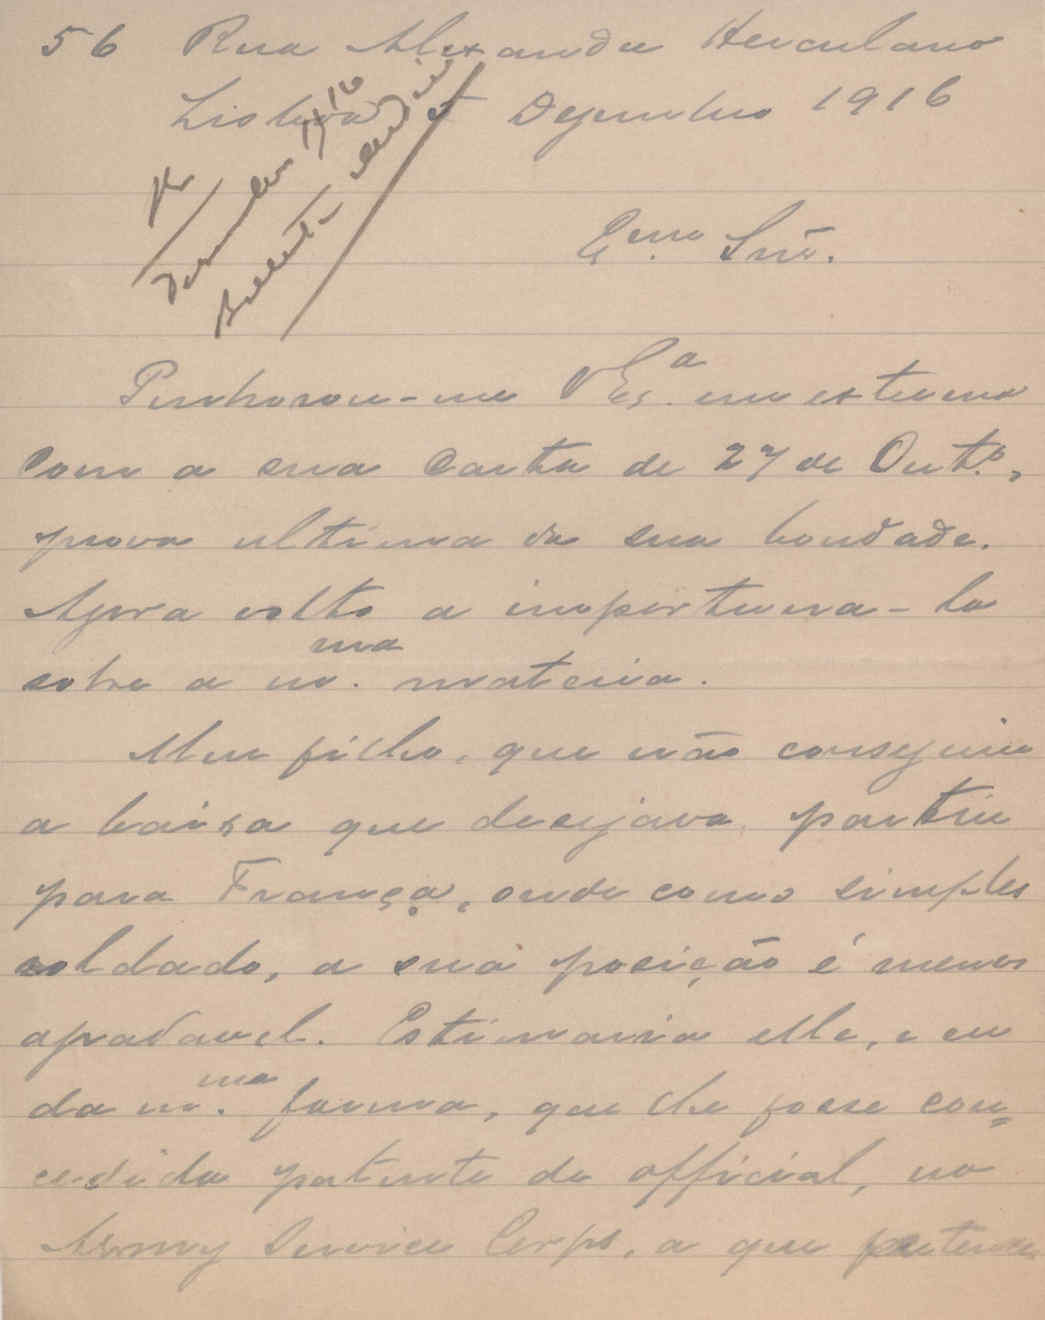 56 Rua Alexandre Herculano
Lisboa Dezembro 1916
Exmo Snr.
Penhorou-me V Exa. em extremo
com a sua carta de 27 de Outo.,
prova ultima da sua bondade.
Agora volto a importuna-lo
sobre a mma. materia.
Meu filho, que não conseguiu
a baixa que desejava, partiu
para França, onde como simples
soldado, a sua posição é menos
agradavel. Estimaria elle, e eu
da mma. forma, que lhe fosse con-
cedida patente de official, no
Army Service Corps, a que pertence